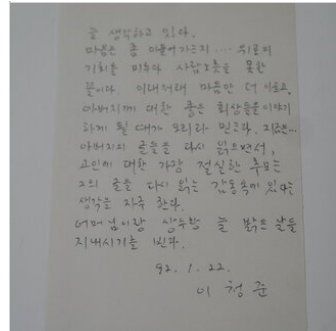 늘 생각하고 있다.
마음은 좀 아물어가는지... 위로의
기회를 미루다 사람노릇을 못한
꼴이다 이래저래 마음만 더 아프고,
아버지께 대한 좋은 회상들을 이야기
하게 될 때가 오리라 믿는다. 지금은...
아버지의 글들을 다시 읽으면서,
고인에 대한 가장 절실한 추모는
그의 글을 다시 읽는 감동속에 있다는
생각을 자주 한다.
어머님이랑 늘 밝은 날들
지내시기를 빈다.
92. 1. 22.
이 청 준